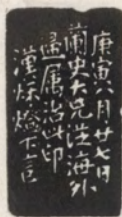 庚寅八月廿七日
蘭史大兄從海外
歸属治此印
漢秌燈下言